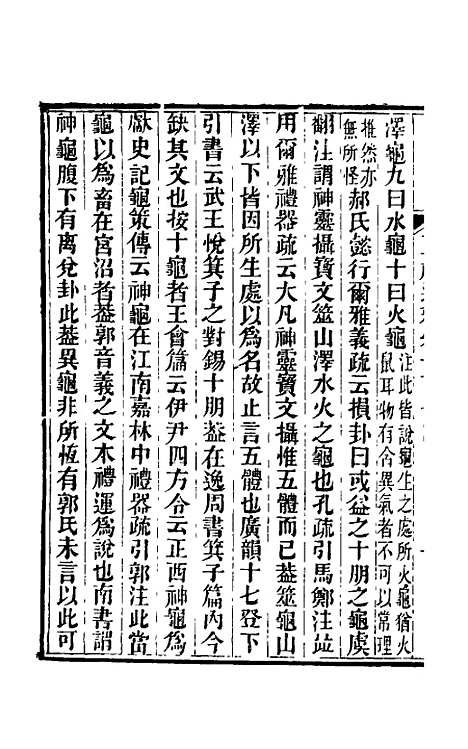 澤龜九曰水龜十曰火龜注此皆說龜生之處所火龜猶火
鼠耳物有含異氣者不可以常理
推然亦
無所怪郝氏懿行爾雅義疏云損卦曰或益之十朋之龜虞
翻注謂神靈攝寶文筮山澤水火之龜也孔疏引馬鄭注竝
用爾雅禮器疏云大凡神靈寶文攝惟五體而已葢筮龜山
澤以下皆因所生處以爲名故止言五體也廣韻十七登下
引書云武王悅箕子之對錫十朋葢在逸周書箕子篇內今
缺其文也按十龜者王會篇云伊尹四方令云正西神龜爲
獻史記龜策傳云神龜在江南嘉林中禮器疏引郭注此當
龜以爲畜在宮沼者葢郭音義之文本禮運爲說也南書謂
神龜腹下有离兌卦此葢異龜非所恆有郭氏未言以此可